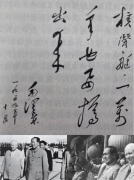 核潜艇，一万
年也要搞
出来
毛泽东
一九五九年
十月